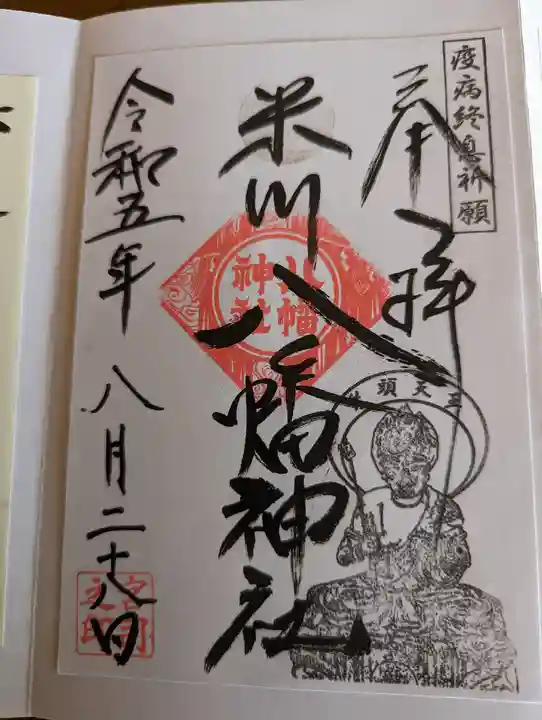 疫病終息祈願
奉拝
米川八幡神社
八幡
神社
令和五年八月二十八日
宮司
之印